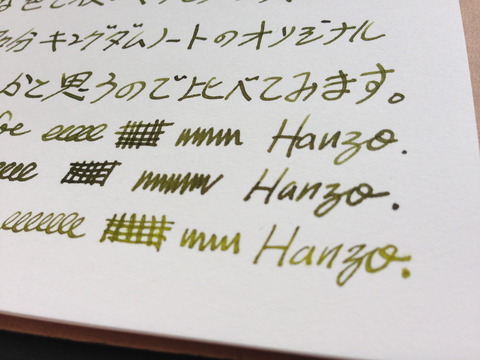 分 キングダムノートのオリジナル
かと思うので比べてみます。
Hanzo.
Hanzo.
Hanzo.